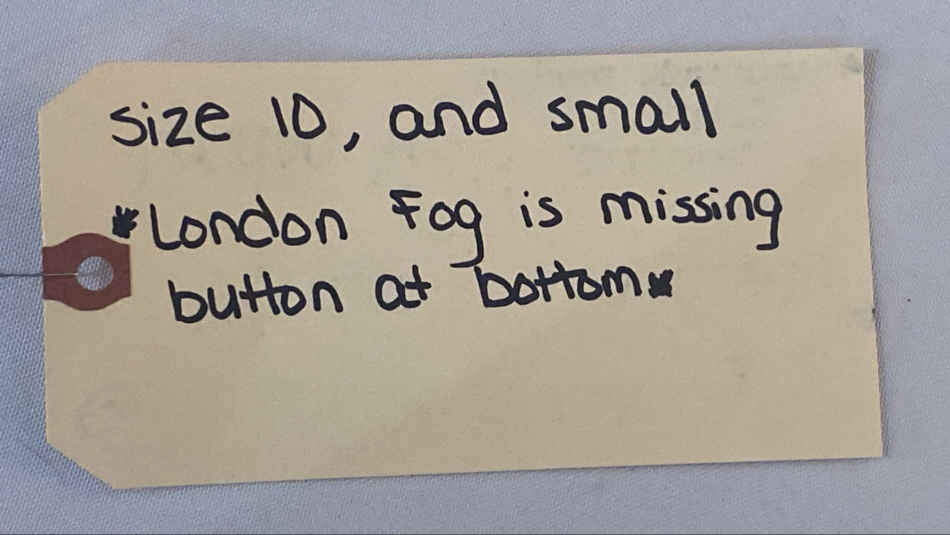 size 10, and small
*London Fog is missing
button at bottom*